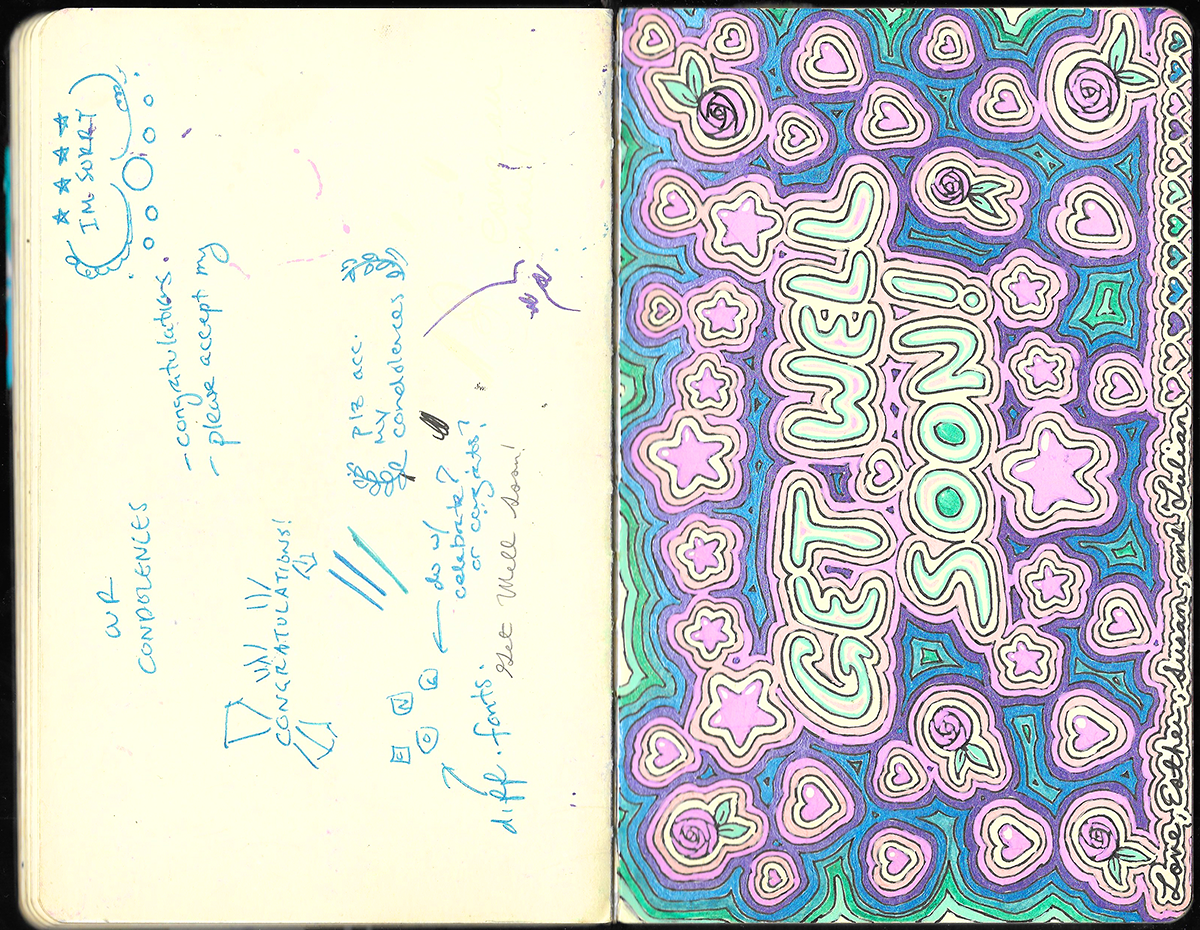 IM SORRY
OUR
CONDOLENCES
- congratulations.
- please accept my
CONGRATULATIONS!
plz acc.
my
condolences
E N
O
do w/
celebrate?
or congrats?
diff. fonts.
Get Well Soon!
GET WELL
SOON!
Love, Esther, Susan, and Julian